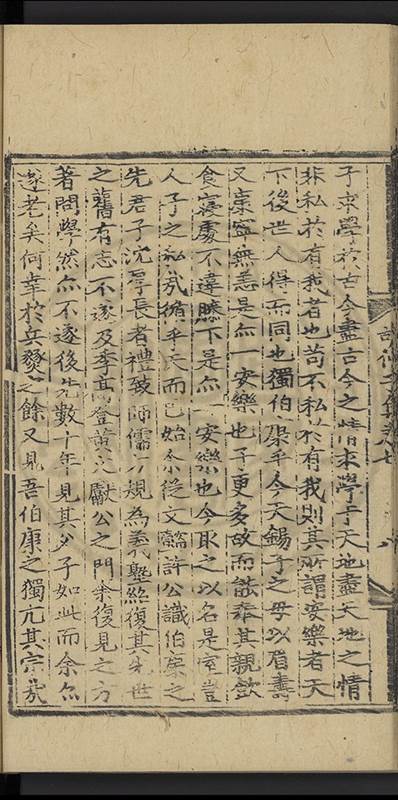 子求學於古今盡古今之情求學于天地盡天地之情
非私於有我者也苟不私於有我則其所謂安樂者天
下後世人得而同也獨伯康乎今天錫子之母以眉壽
又稟寧無恙是亦一安樂也子更多故而能奉其親飲
食寢處不違膝下是亦一安樂也今取之以名是室豈
人子之私哉循乎天而已始余從文懿許公識伯康之
先君子沈厚長者禮致師儒規為義塾絲復其先世
之舊有志不遂及季登黃文獻公之門余復見之方
著問學然亦不遂後先數十年見其父子如此而余亦
遂老矣何幸於兵燹之餘又見吾伯康之獨亢其宗哉
集卷七
八